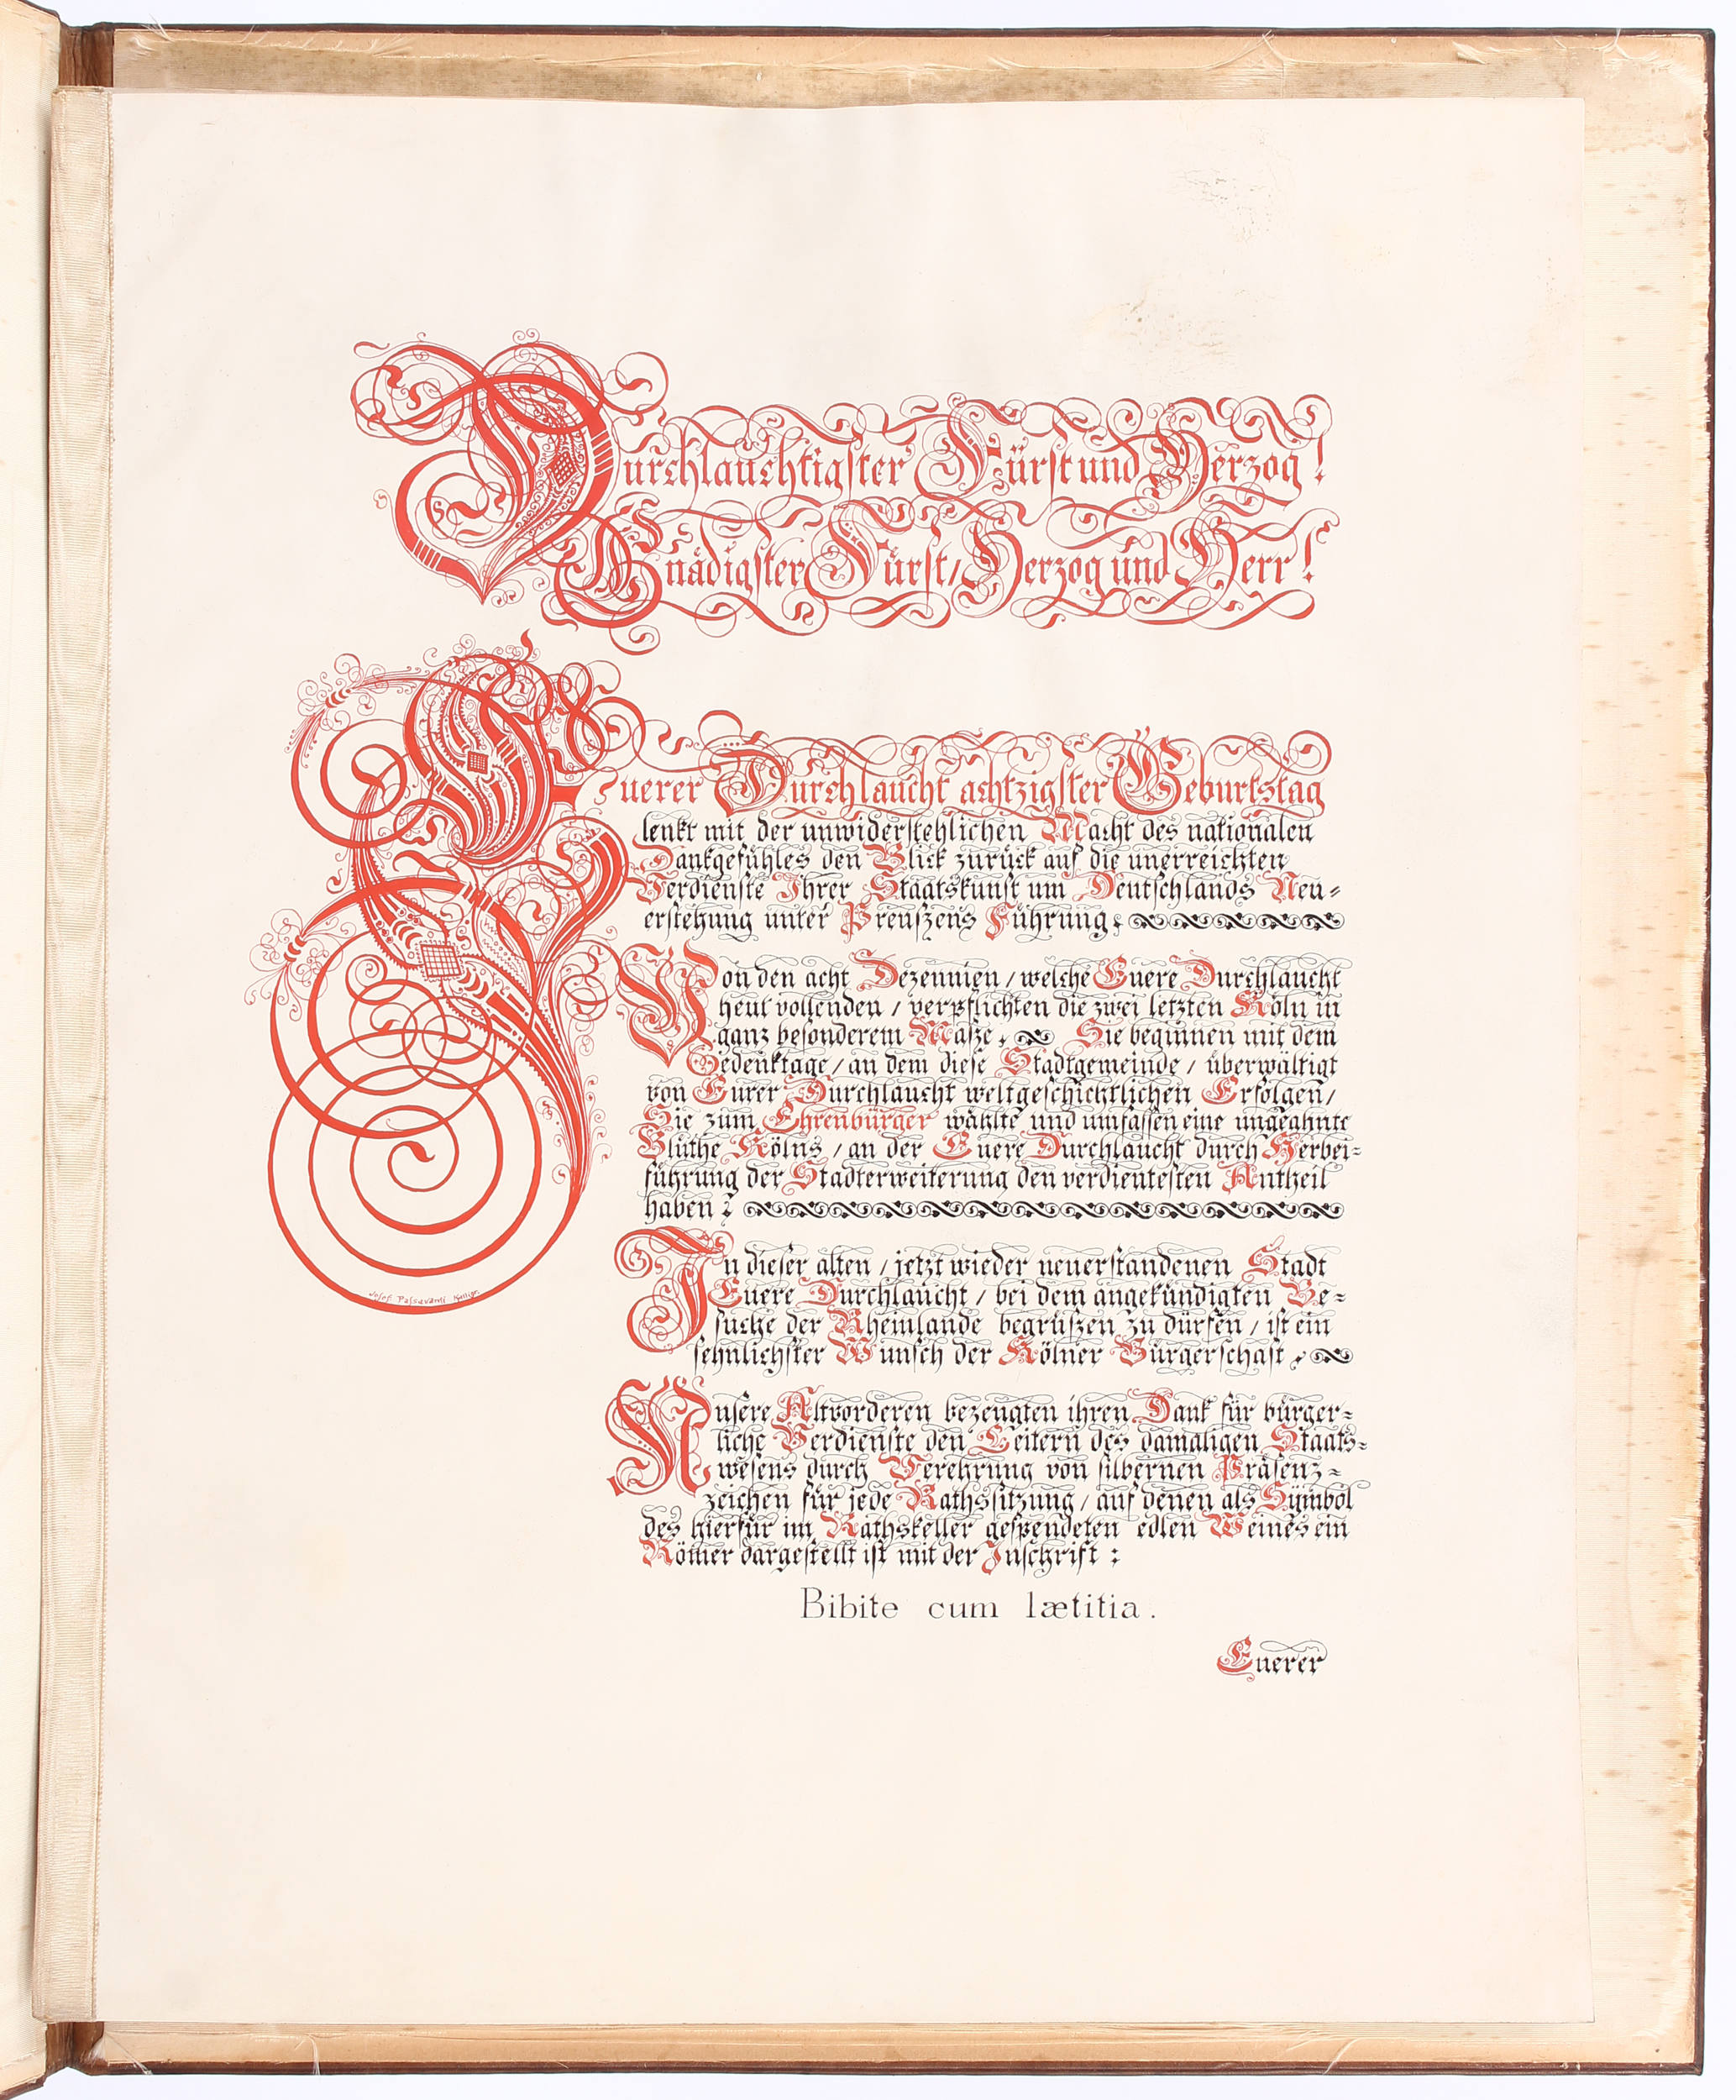 Durchlauchtigster Fürst und Herzog!
Gnädigster Fürst/ Herzog und Herr!
Euerer Durchlaucht achtzigster Geburtstag
lenkt mit der unwiderstehlichen Macht des nationalen
Dankgefühles den Blick zurück auf die unerreichten
Verdienste Ihrer Staatskunst um Deutschlands Neu=
erstehung unter Preuszens Führung.
Von den acht Dezennien/ welche Euere Durchlaucht
heut vollenden/ verpflichten die zwei letzten Köln in
ganz besonderem Masze. Sie beginnen mit dem
Gedenktage/ an dem diese Stadtgemeinde/ überwältigt
von Eurer Durchlaucht weltgeschichtlichen Erfolgen/
Sie zum Ehrenbürger wählte und umfassen eine ungeahnte
Blüthe Kölns/ an der Euere Durchlaucht durch Herbei=
führung der Stadterweiterung den verdientesten Antheil
haben.
In dieser alten/ jetzt wieder neuerstandenen Stadt
Euere Durchlaucht/ bei dem angekündigten Be=
suche der Rheinlande begrüszen zu dürfen/ ist ein
sehnlichster Wunsch der Kölner Bürgerschaft.
Unsere Altvorderen bezeugten ihren Dank für bürger=
liche Verdienste den Leitern des damaligen Staats=
wesens durch Verehrung von silbernen Präsenz=
zeichen für jede Rathssitzung/ auf denen als Symbol
des hierfür im Rathskeller gespendeten edlen Weines ein
Römer dargestellt ist mit der Inschrift:
Bibite cum lætitia.
Euerer
Josef Passavanti Kalligr.